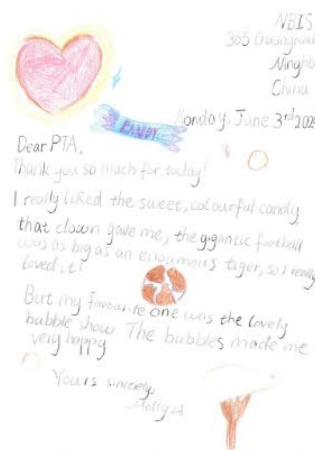 NBIS
365
Ningbo
China
Monday, June 3rd 202
CANDY
Dear PTA,
Thank you so much for today!
I really liked the sweet, colourful candy
that clown gave me, the gigantic football
was as big as an enormous tiger, so I really
loved it!
But my favourite one was the lovely
bubble show. The bubbles made me
very happy
Yours sincerely,
Molly